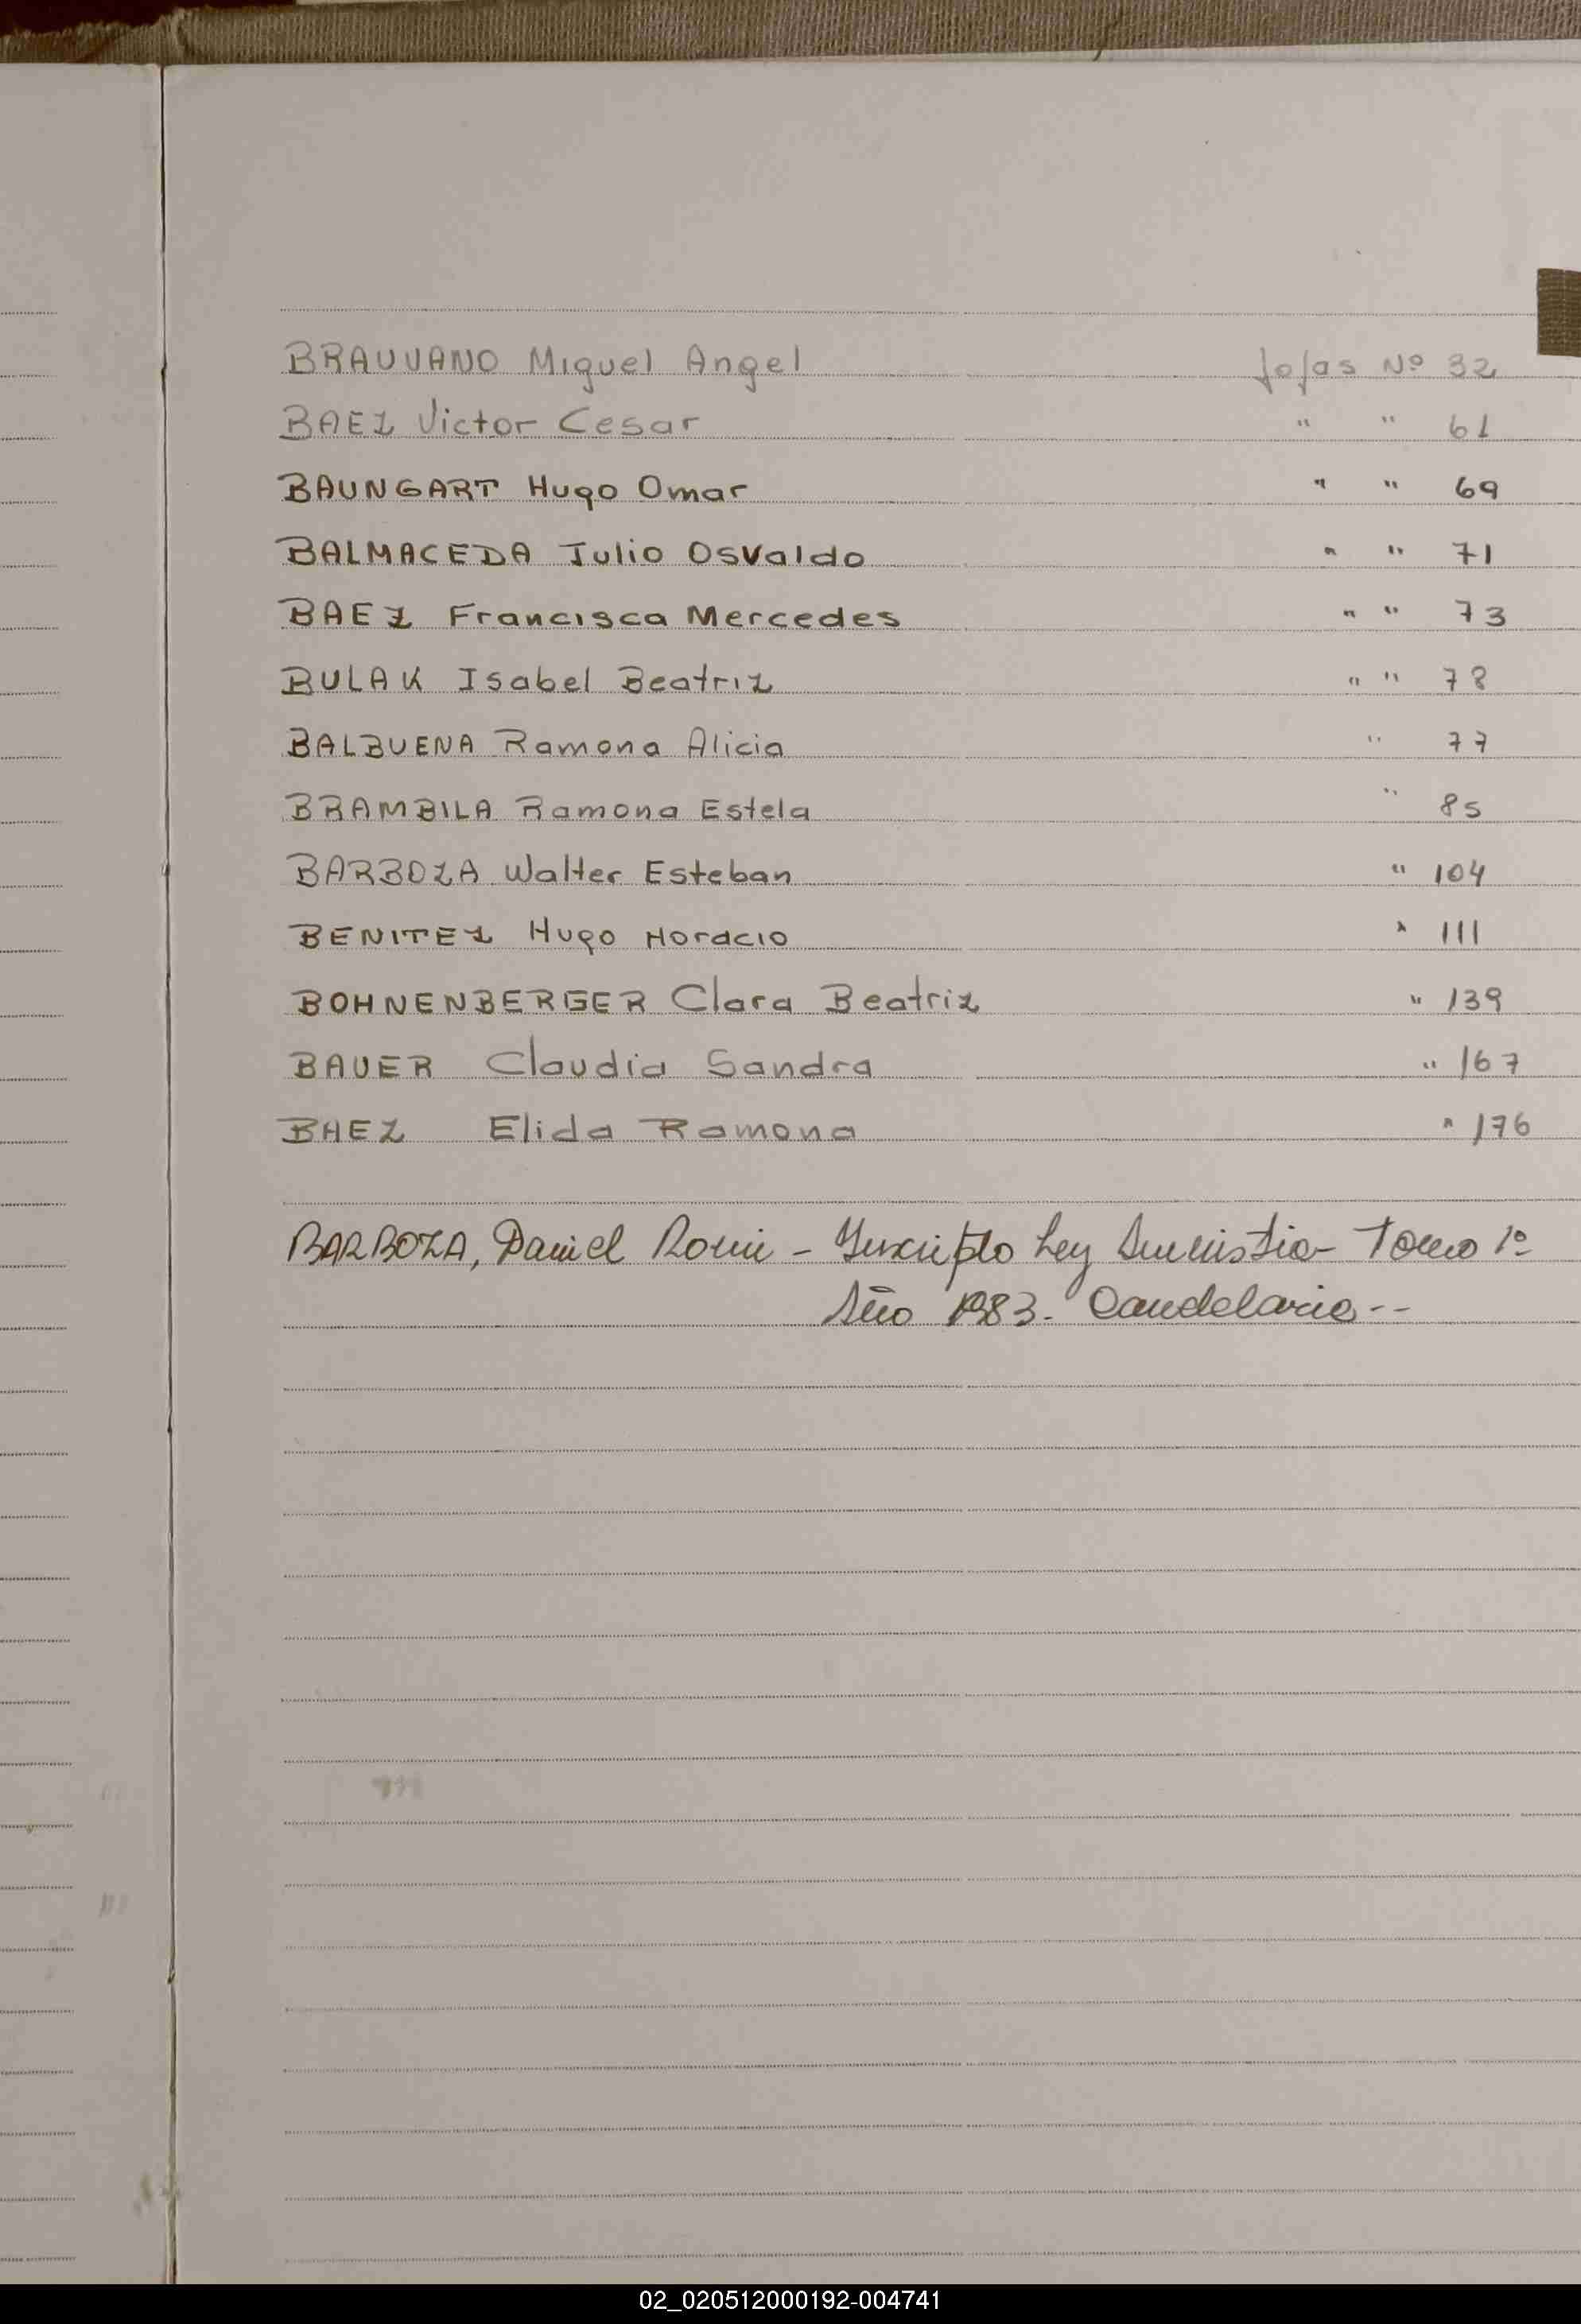 BRAUVANO Miguel Angel fojas Nº 32
BAEZ Victor Cesar " " 61
BAUNGART Hugo Omar " " 69
BALMACEDA Julio Osvaldo " " 71
BAEZ Francisca Mercedes " " 73
BULAK Isabel Beatriz " " 78
BALBUENA Ramona Alicia " 77
BRAMBILA Ramona Estela " 85
BARBOZA Walter Esteban " 104
BENITEZ Hugo Horacio " 111
BOHNENBERGER Clara Beatriz " 139
BAUER Claudia Sandra " 167
BAEZ Elida Ramona " 176
BARBOZA, Daniel - Inscripto Ley Amnistia - Tomo 1º
Año 1983. Candelaria --
02_020512000192-004741